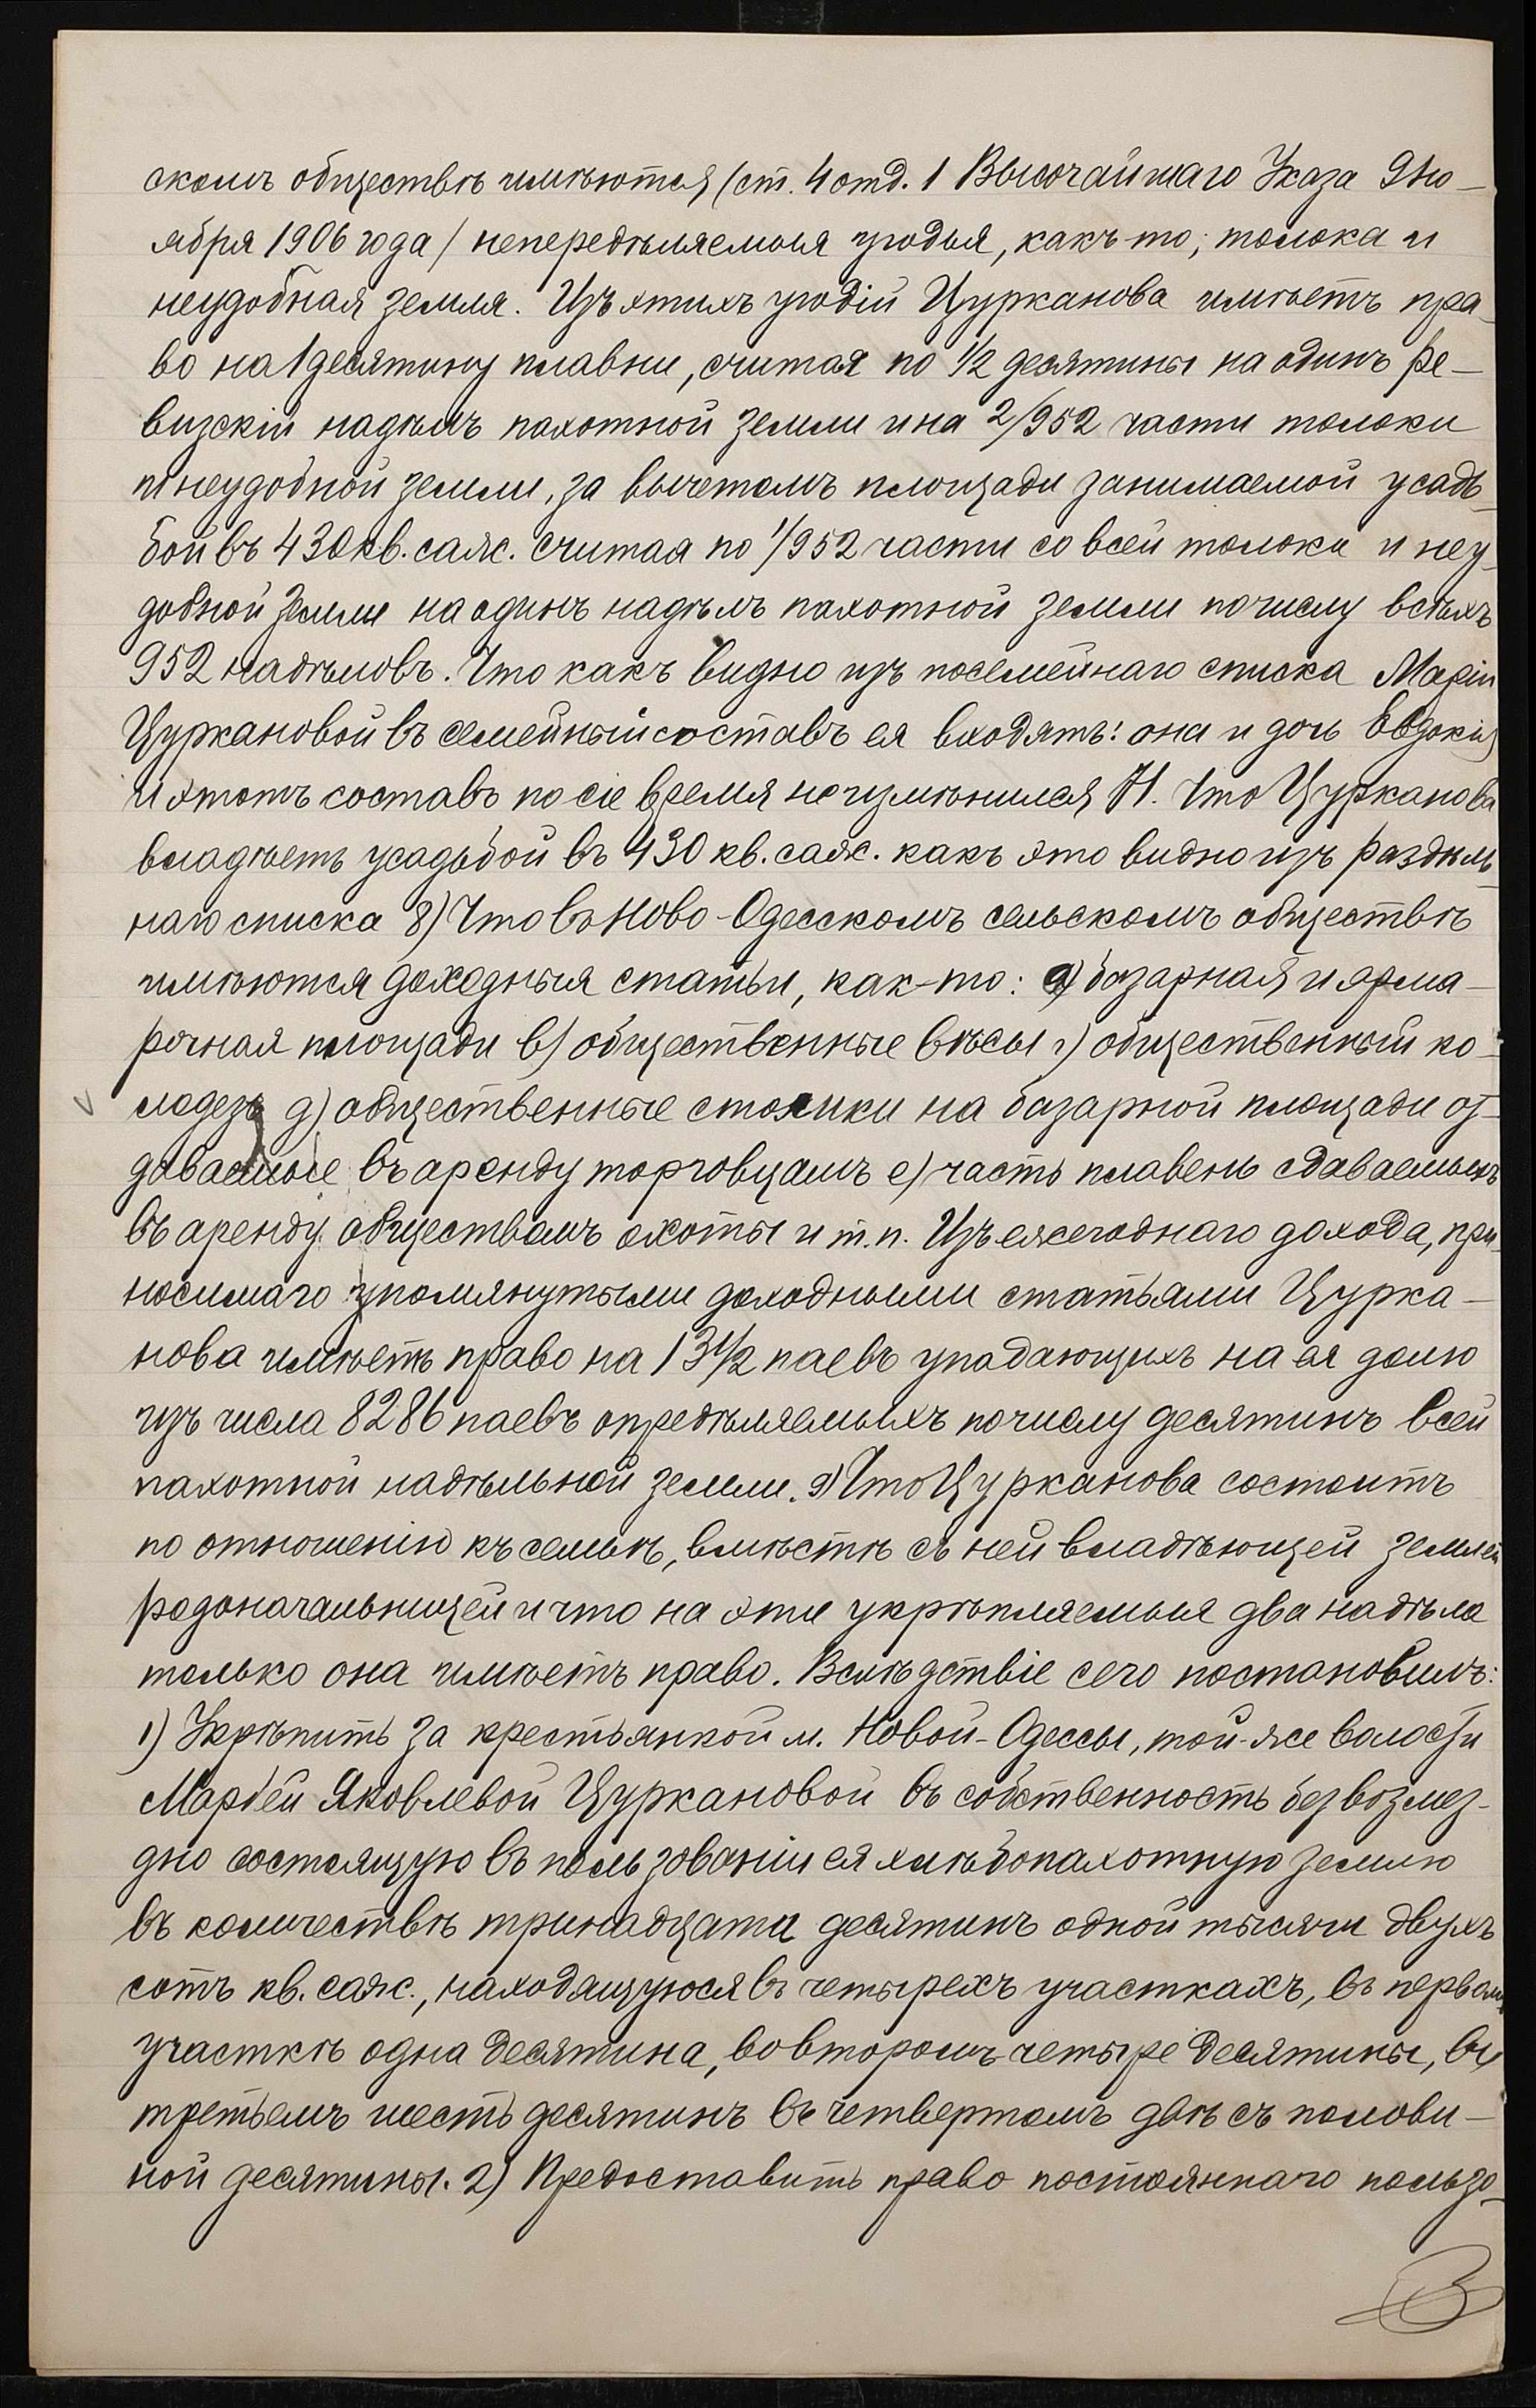 скомъ обществѣ имѣются (ст. 4 отд. 1 Высочайшаго Указа 9 Но-
ября 1906 года) непередѣляемыя угодья, какъ-то; толока и
неудобная земля. Изъ этихъ угодій Цурканова имѣетъ пра-
во на 1 десятину плавни, считая по 1/2 десятины на одинъ ре-
визскій надѣлъ пахотной земли и на 2/952 части толоки
и неудобной земли, за вычетомъ площади занимаемой усадь-
бой въ 430 кв. саж. Считая по 1/952 части со всей толоки и неу-
добной земли на одинъ надѣлъ пахотной земли по числу всѣхъ
952 надѣловъ. Что какъ видно изъ посемейнаго списка Маріи
Цуркановой въ семейный составъ ея входятъ: она и дочь Евдокія
и этотъ составъ по сіе время не измѣнился 7. Что Цурканова
владѣетъ усадьбой въ 430 кв. саж. какъ это видно изъ раздѣль-
наго списка 8) Что въ Ново-Одесскомъ сельскомъ обществѣ
имѣются доходныя статьи, как-то: а) базарная и ярма-
рочная площади в) общественные вѣсы г) общественный ко-
лодезь д) общественные столики на базарной площади от-
даваемые въ аренду торговцамъ е) часть плавень сдаваемыхъ
въ аренду обществамъ охоты и т. п. Изъ ежегоднаго дохода, при-
носимаго упомянутыми доходными статьями Цурка-
нова имѣетъ право на 13 1/2 паевъ упадающихъ на ея долю
изъ числа 8286 паевъ опредѣляемыхъ по числу десятинъ всей
пахотной надѣльной земли. 9) Что Цурканова состоитъ
по отношенію къ семьѣ, вмѣстѣ съ ней владѣющей землей
родоначальницей и что на эти укрѣпляемыя два надѣла
только она имѣетъ право. Вслѣдствіе сего постановилъ:
1) Укрѣпить за крестьянкой м. Новой-Одессы, той-же волости
Маріей Яковлевой Цуркановой въ собственность безвозмез-
дно состоящую въ пользованіи ея хлѣбопахотную землю
въ количествѣ тринадцати десятинъ одной тысячи двухъ
сотъ кв. саж., находящуюся въ четырехъ участкахъ, въ первомъ
участкѣ одна десятина, во второмъ четыре десятины, въ
третьемъ шесть десятинъ въ четвертомъ двѣ съ полови-
ной десятины. 2) Предоставить право постояннаго пользо-